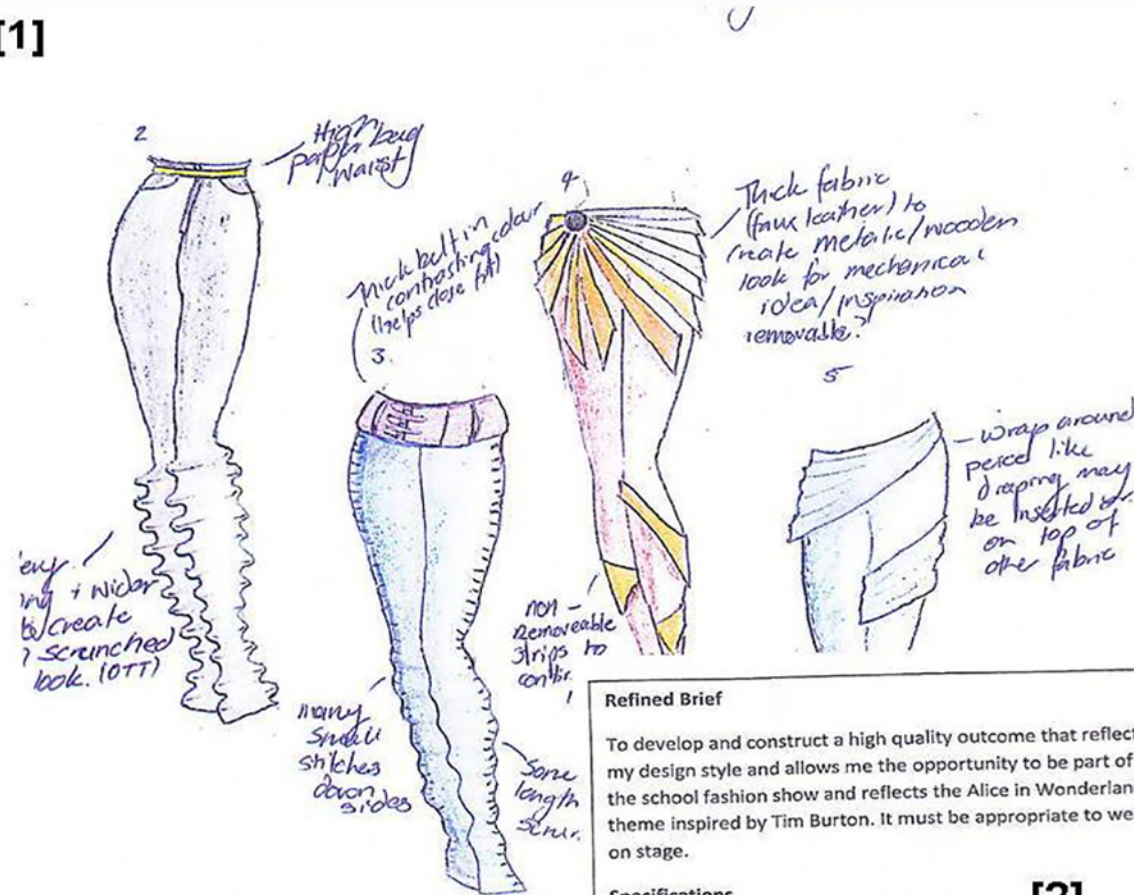 [1]
2
High
paper bag
waist
thick belt in
contrasting colour
(helps close fit)
3.
4
Thick fabric
(faux leather) to
create metalic/wooden
look for mechanical
idea/inspiration
removable?
5
- wrap around
peice like
draping may
be inserted or
on top of
other fabric
+ wider
create
scrunched
look. (OTT)
many
small
stitches
down
sides
Some
length
scrun.
non -
removeable
strips to
Refined Brief
To develop and construct a high quality outcome that reflect
my design style and allows me the opportunity to be part of
the school fashion show and reflects the Alice in Wonderlan
theme inspired by Tim Burton. It must be appropriate to we
on stage.
Specifications
[2]